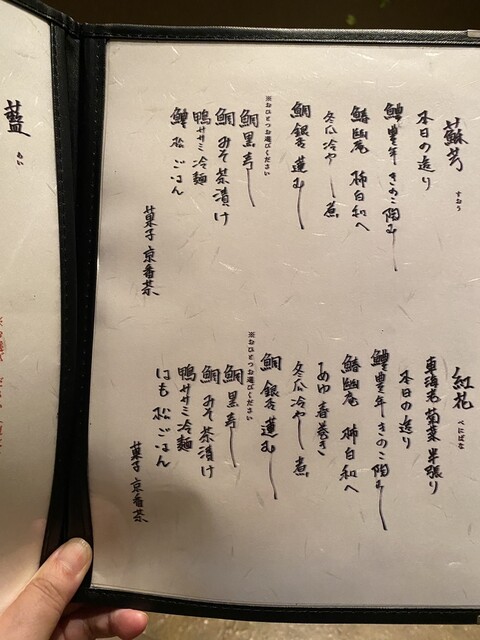 蘇芳
すおう
本日の造り
鱧豊年 きのこ陶
鰆幽庵 柿白和へ
冬瓜冷やし煮
鯛銀杏蓮むし
※おひとつお選びください
鯛黒寿し
鯛みそ茶漬け
鴨ササミ冷麺
鱧松ごはん
菓子 京番茶
紅花
べにばな
車海老 菊菜 半張り
本日の造り
鱧豊年 きのこ陶
鰆幽庵 柿白和へ
あゆ春巻き
冬瓜冷やし煮
鯛銀杏蓮むし
※おひとつお選びください
鯛黒寿し
鯛みそ茶漬け
鴨ササミ冷麺
はも松ごはん
菓子 京番茶
藍
あい